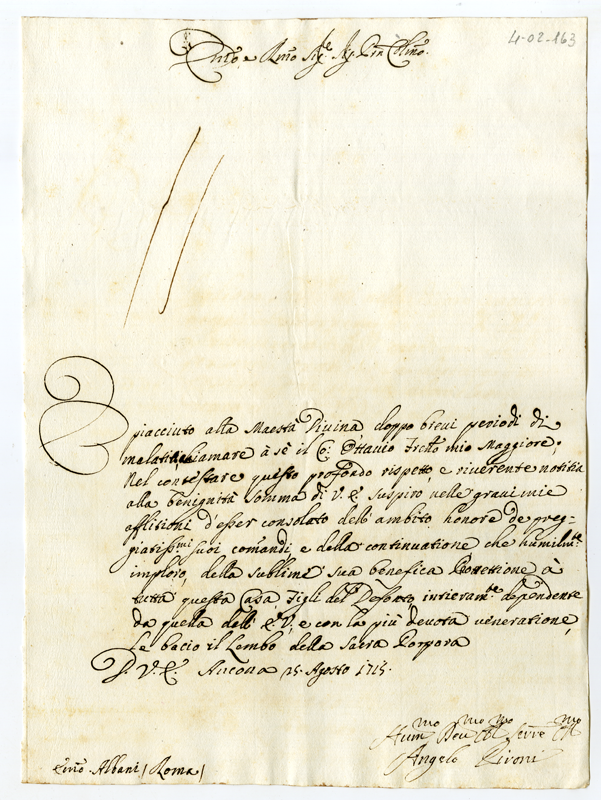 4-02-163
Em̃o, e Rmo Sig.re Sig. Prñ Colmo.
È piacciuto alla Maestà Divina doppo brevi periodi di
malatia chiamare à sè il Co: Ottavio Frello mio Maggiore;
Nel contestare questo profondo rispetto, e riverente notitia
alla benignità somma di V. E. suspiro nelle gravi mie
afflitioni d'esser consolato dell'ambito honore de preg=
giatissmi suoi comandi, e della continuatione, che humilmte
imploro, della sublime sua benefica Protettione à
tutta questa Casa, Figli del Defonto, intieramte dependente
da quella dell'E. V., e con la più devota veneratione,
Le bacio il Lembo della Sacra Porpora
D. V. E. Ancona 25. Agosto 1715.
Hummo Devmo Obmo Serre
Angelo
Emo Albani (Roma)